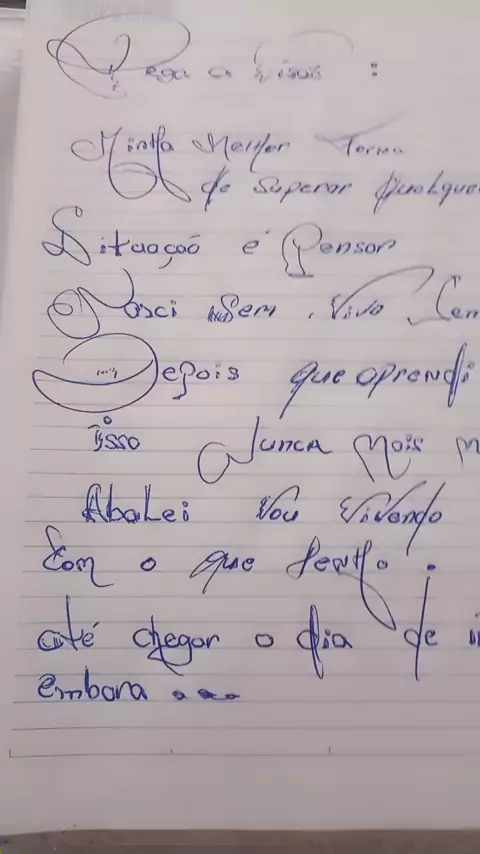 Pega a visão :
Minha Melhor Forma
de Superar Qualque
Situação é Pensar
Nasci Sem . Vivo Sem
Depois que aprendi
isso Nunca Mais M
Abalei Vou Vivendo
Com o que tenho .
até chegar o dia de i
embora ...